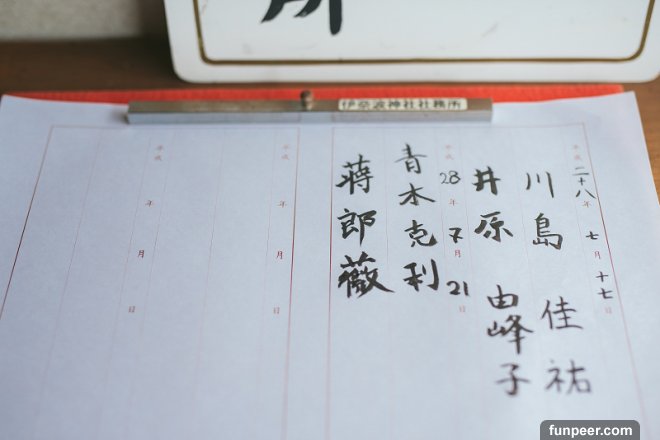 所
伊奈波神社社務所
平成二十八年七月十七日
川島 佳祐
井原 由峰子
平成28年7月21日
青木克利
蒋郎薇
平成 年 月 日
平成 年 月 日
funpeer.com